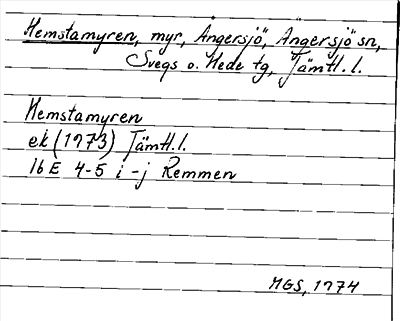 Hemstamyren, myr, Ängersjö, Ängersjö sn,
Svegs o. Hede tg, Jämtl. l.
Hemstamyren
ek (1973) Jämtl. l.
16 E 4-5 i-j Remmen
MGS, 1974